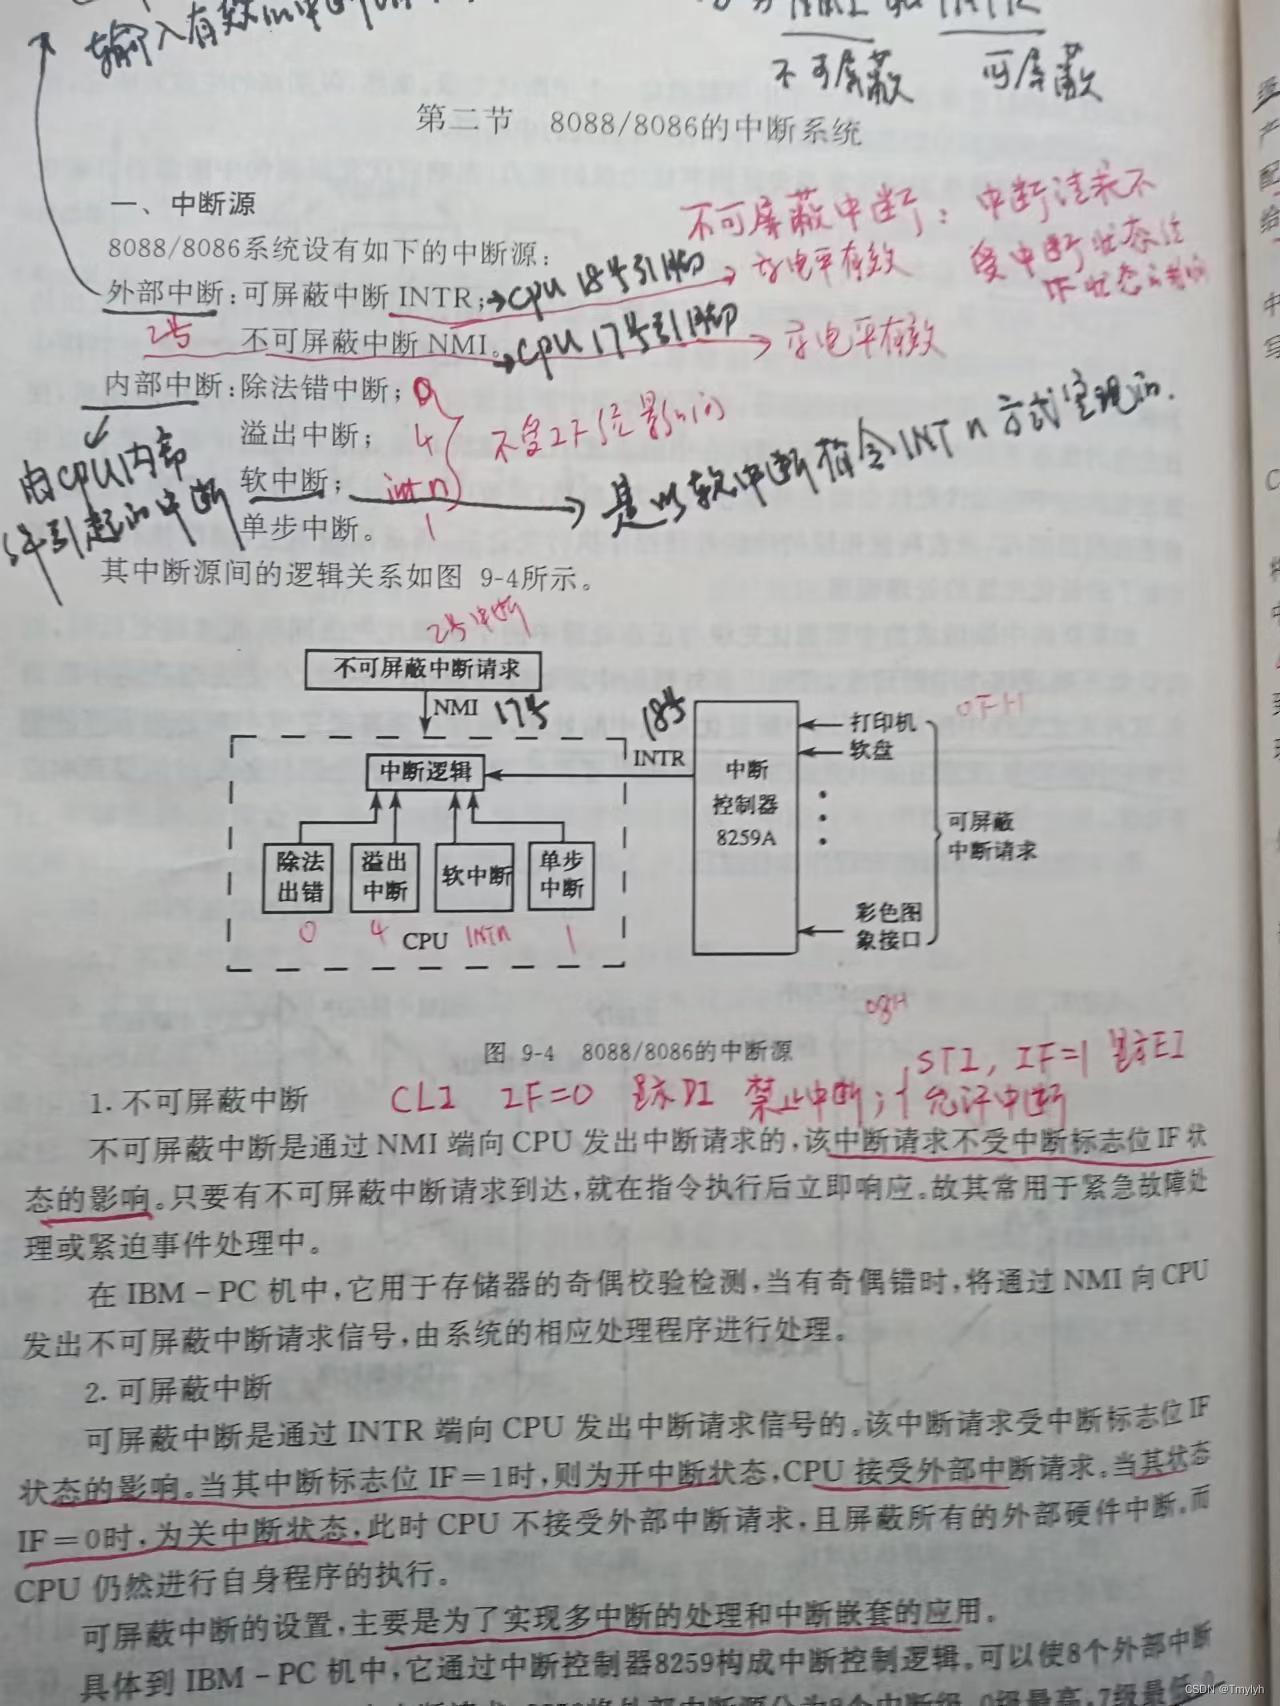 输入有效的中断
不可屏蔽 可屏蔽
第二节 8088/8086的中断系统
一、中断源
不可屏蔽中断：中断请求不
受中断状态位
IF状态的影响
8088/8086系统设有如下的中断源：
外部中断：可屏蔽中断 INTR；→CPU 18号引脚→高电平有效
2号 不可屏蔽中断 NMI。→CPU 17号引脚→高电平有效
内部中断：除法错中断； 0
溢出中断； 4 不受IF位影响
软中断； int n → 是以软中断指令INT n 方式实现的.
单步中断。 1
由CPU内部
引起的中断
其中断源间的逻辑关系如图 9-4所示。
2号中断
不可屏蔽中断请求
NMI 17号
18号
INTR
中断逻辑
除法
出错
0
溢出
中断
4
软中断
INTn
单步
中断
1
CPU
中断
控制器
8259A
打印机
0FH
软盘
可屏蔽
中断请求
彩色图
象接口
08H
图 9-4 8088/8086的中断源
STI, IF=1 显示EI
1. 不可屏蔽中断 CLI IF=0 显示DI 禁止中断； 允许中断
不可屏蔽中断是通过 NMI 端向 CPU 发出中断请求的，该中断请求不受中断标志位 IF 状
态的影响。只要有不可屏蔽中断请求到达，就在指令执行后立即响应。故其常用于紧急故障处
理或紧迫事件处理中。
在 IBM－PC 机中，它用于存储器的奇偶校验检测，当有奇偶错时，将通过 NMI 向 CPU
发出不可屏蔽中断请求信号，由系统的相应处理程序进行处理。
2. 可屏蔽中断
可屏蔽中断是通过 INTR 端向 CPU 发出中断请求信号的。该中断请求受中断标志位 IF
状态的影响。当其中断标志位 IF＝1时，则为开中断状态，CPU 接受外部中断请求。当其状态
IF＝0时，为关中断状态，此时 CPU 不接受外部中断请求，且屏蔽所有的外部硬件中断。而
CPU 仍然进行自身程序的执行。
可屏蔽中断的设置，主要是为了实现多中断的处理和中断嵌套的应用。
具体到 IBM－PC 机中，它通过中断控制器8259构成中断控制逻辑。可以使8个外部中断
CSDN @Tmylyh